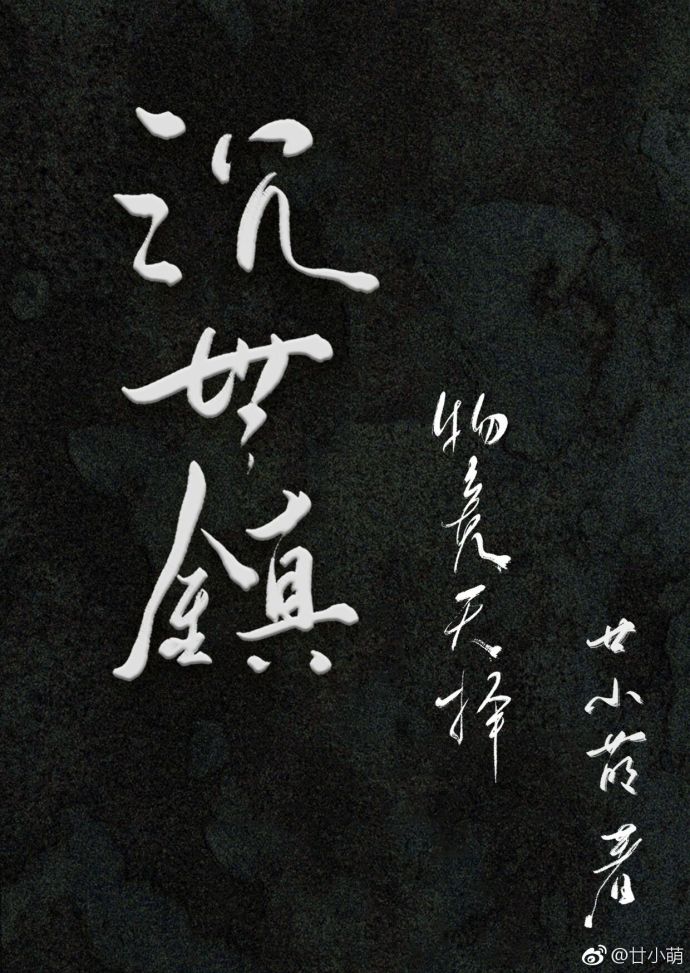 沉世鎮
物竞天择
廿小萌 著
@廿小萌